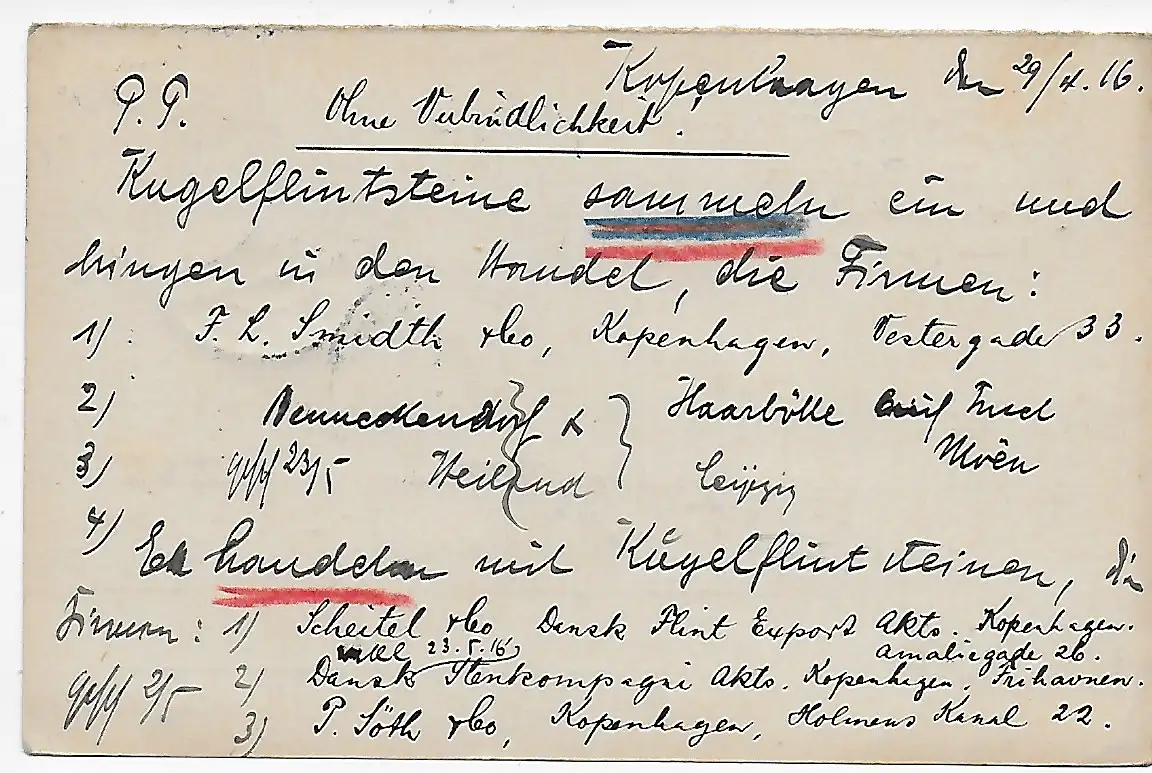 Kopenhagen den 29/4.16.
P.P.
Ohne Verbindlichkeit.
Kugelflintsteine sammeln ein und
bringen in den Handel, die Firmen:
1) F. L. Smidth & Co, Kopenhagen, Vestergade 33.
2) Denneckendorf & Haarbölle auf Insel
Moën
3) Weiland Leipzig
4)
Es handeln mit Kugelflintsteinen, die
Firmen: 1) Scheitel & Co Dansk Flint Export Akts. Kopenhagen.
23.5.16 Amaliegade 26.
2) Dansk Stenkompagni Akts. Kopenhagen, Frihavnen.
3) P. Söth & Co, Kopenhagen, Holmens Kanal 22.